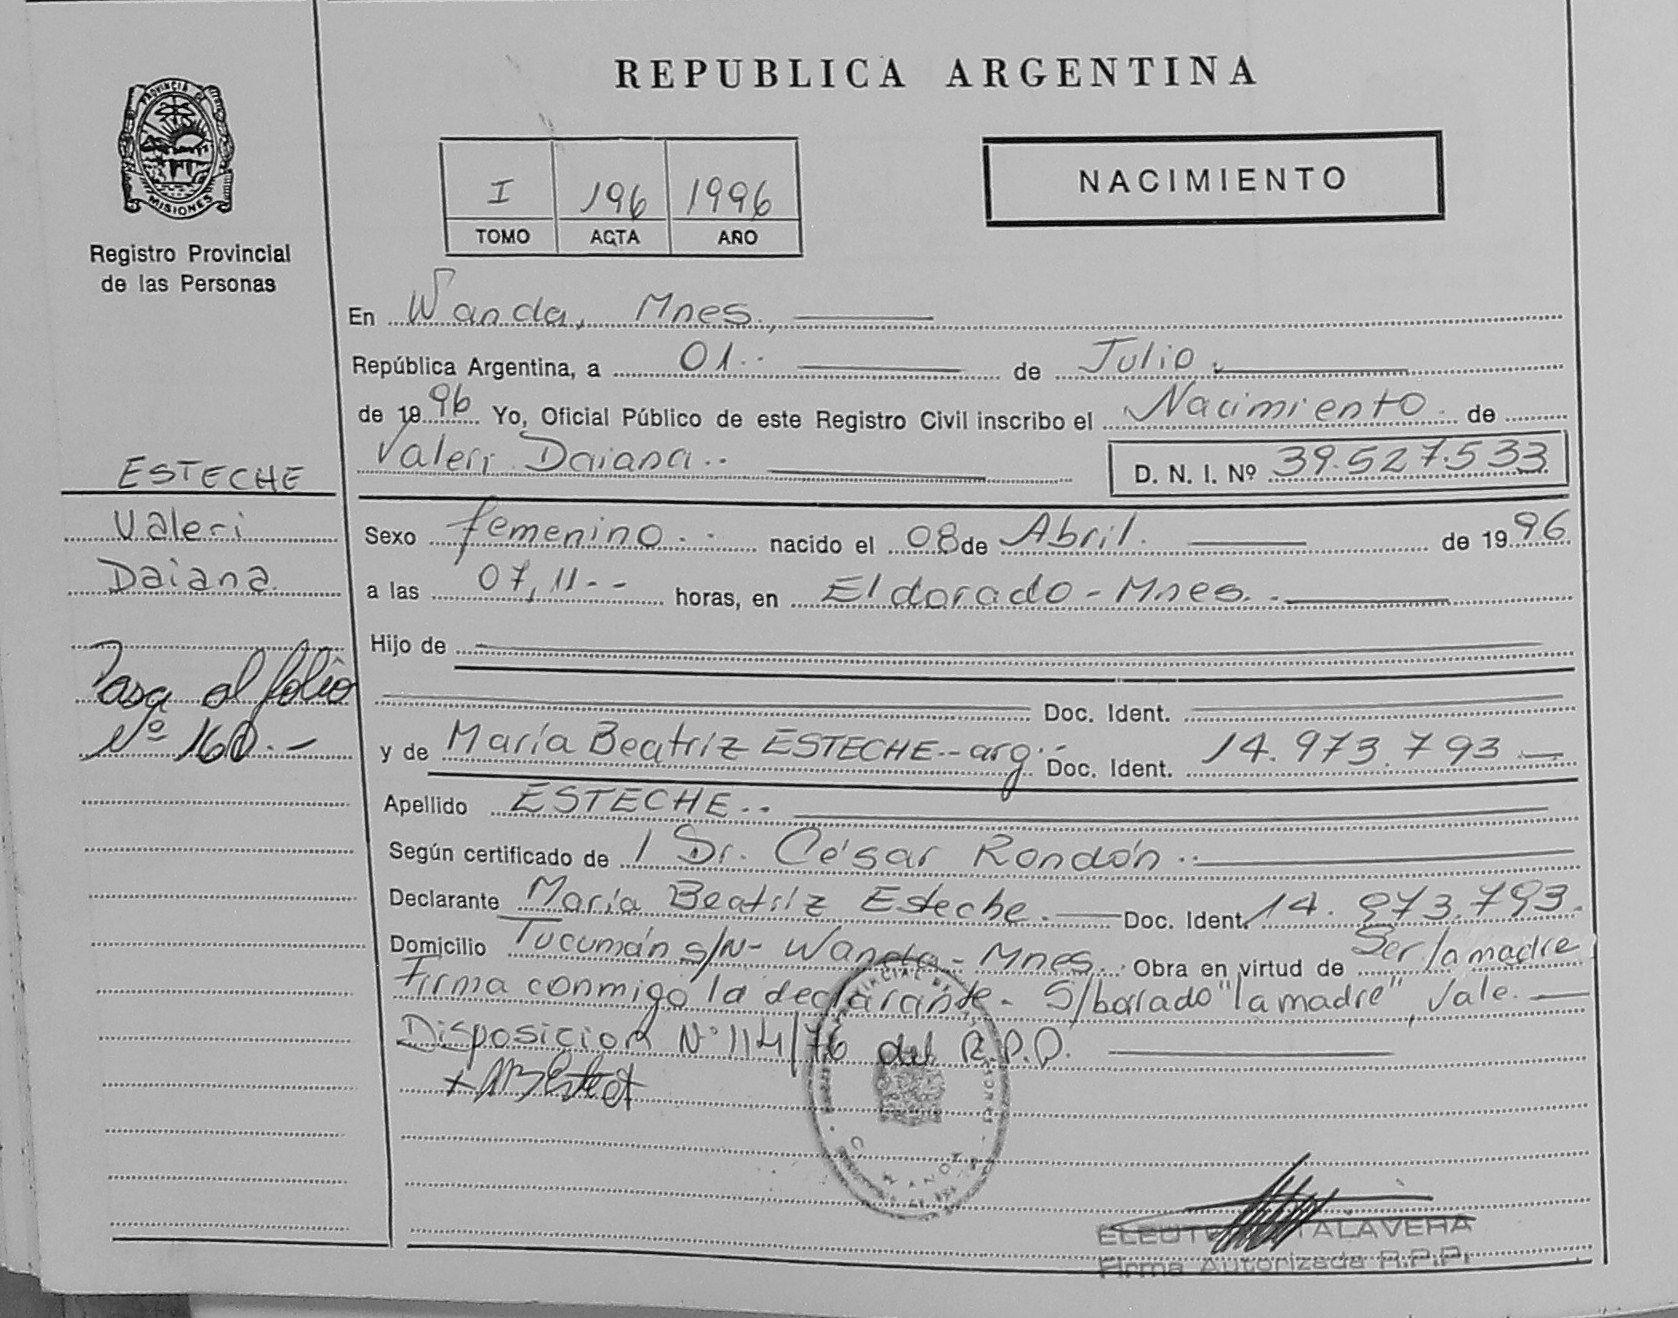 REPUBLICA ARGENTINA
PROVINCIA DE
MISIONES
Registro Provincial
de las Personas
I 196 1996
TOMO ACTA AÑO
NACIMIENTO
En Wanda, Mnes.,
República Argentina, a 01.. de Julio
de 1996 Yo, Oficial Público de este Registro Civil inscribo el Nacimiento de
Valeri Daiana.. D. N. I. Nº 39.527.533
ESTECHE
Valeri
Daiana.
Pasa al folio
Nº 160.-
Sexo femenino.. nacido el 08 de Abril. de 1996
a las 07,11-- horas, en Eldorado - Mnes.
Hijo de
Doc. Ident.
y de María Beatriz ESTECHE--arg.- Doc. Ident. 14.973.793
Apellido ESTECHE..
Según certificado de 1 Dr. César Rondón..
Declarante María Beatriz Esteche. Doc. Ident. 14.973.793.
Domicilio Tucumán s/N- Wanda - Mnes. Obra en virtud de Ser la madre
Firma conmigo la declarante.- S/borrado "la madre", Vale.
Disposicion Nº 114/76 del R.P.P.
TALAVERA
Firma Autorizada R.P.P.